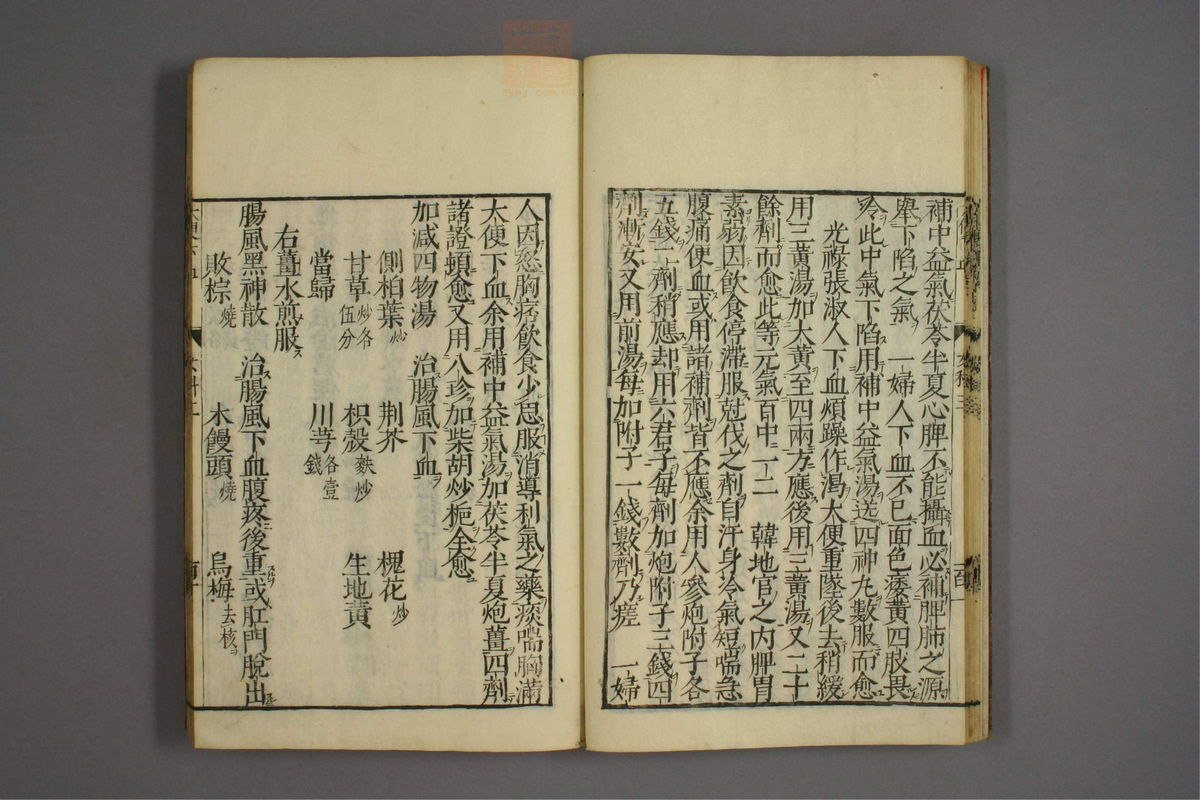 補中益氣茯苓半夏心脾不能攝血必補脾肺之源
舉下陷之氣　一婦人下血不已面色痿黃四肢畏
冷此中氣下陷用補中益氣湯送四神丸數服而愈
光祿張淑人下血煩躁作渴大便重墜後去稍緩
用三黃湯加大黃至四兩方應後用三黃湯又二十
餘劑而愈此等元氣百中一二　韓地官之內脾胃
素弱因飲食停滯服尅伐之劑自汗身冷氣短喘急
腹痛便血或用諸補劑皆不應余用人參炮附子各
五錢二劑稍應却用六君子每劑加炮附子三錢四
劑漸安又用前湯每加附子一錢數劑乃瘥　一婦
人因怒胸痞飲食少思服消導利氣之藥痰喘胸滿
大便下血余用補中益氣湯加茯苓半夏炮薑四劑
諸證頓愈又用八珍加柴胡炒梔全愈
加減四物湯　治腸風下血
側柏葉炒　荆芥　槐花炒
甘草炒各伍分　枳殼麩炒　生地黃
當歸　川芎各壹錢
右薑水煎服
腸風黑神散　治腸風下血腹疼後重或肛門脫出
敗棕燒　木饅頭燒　烏梅去核